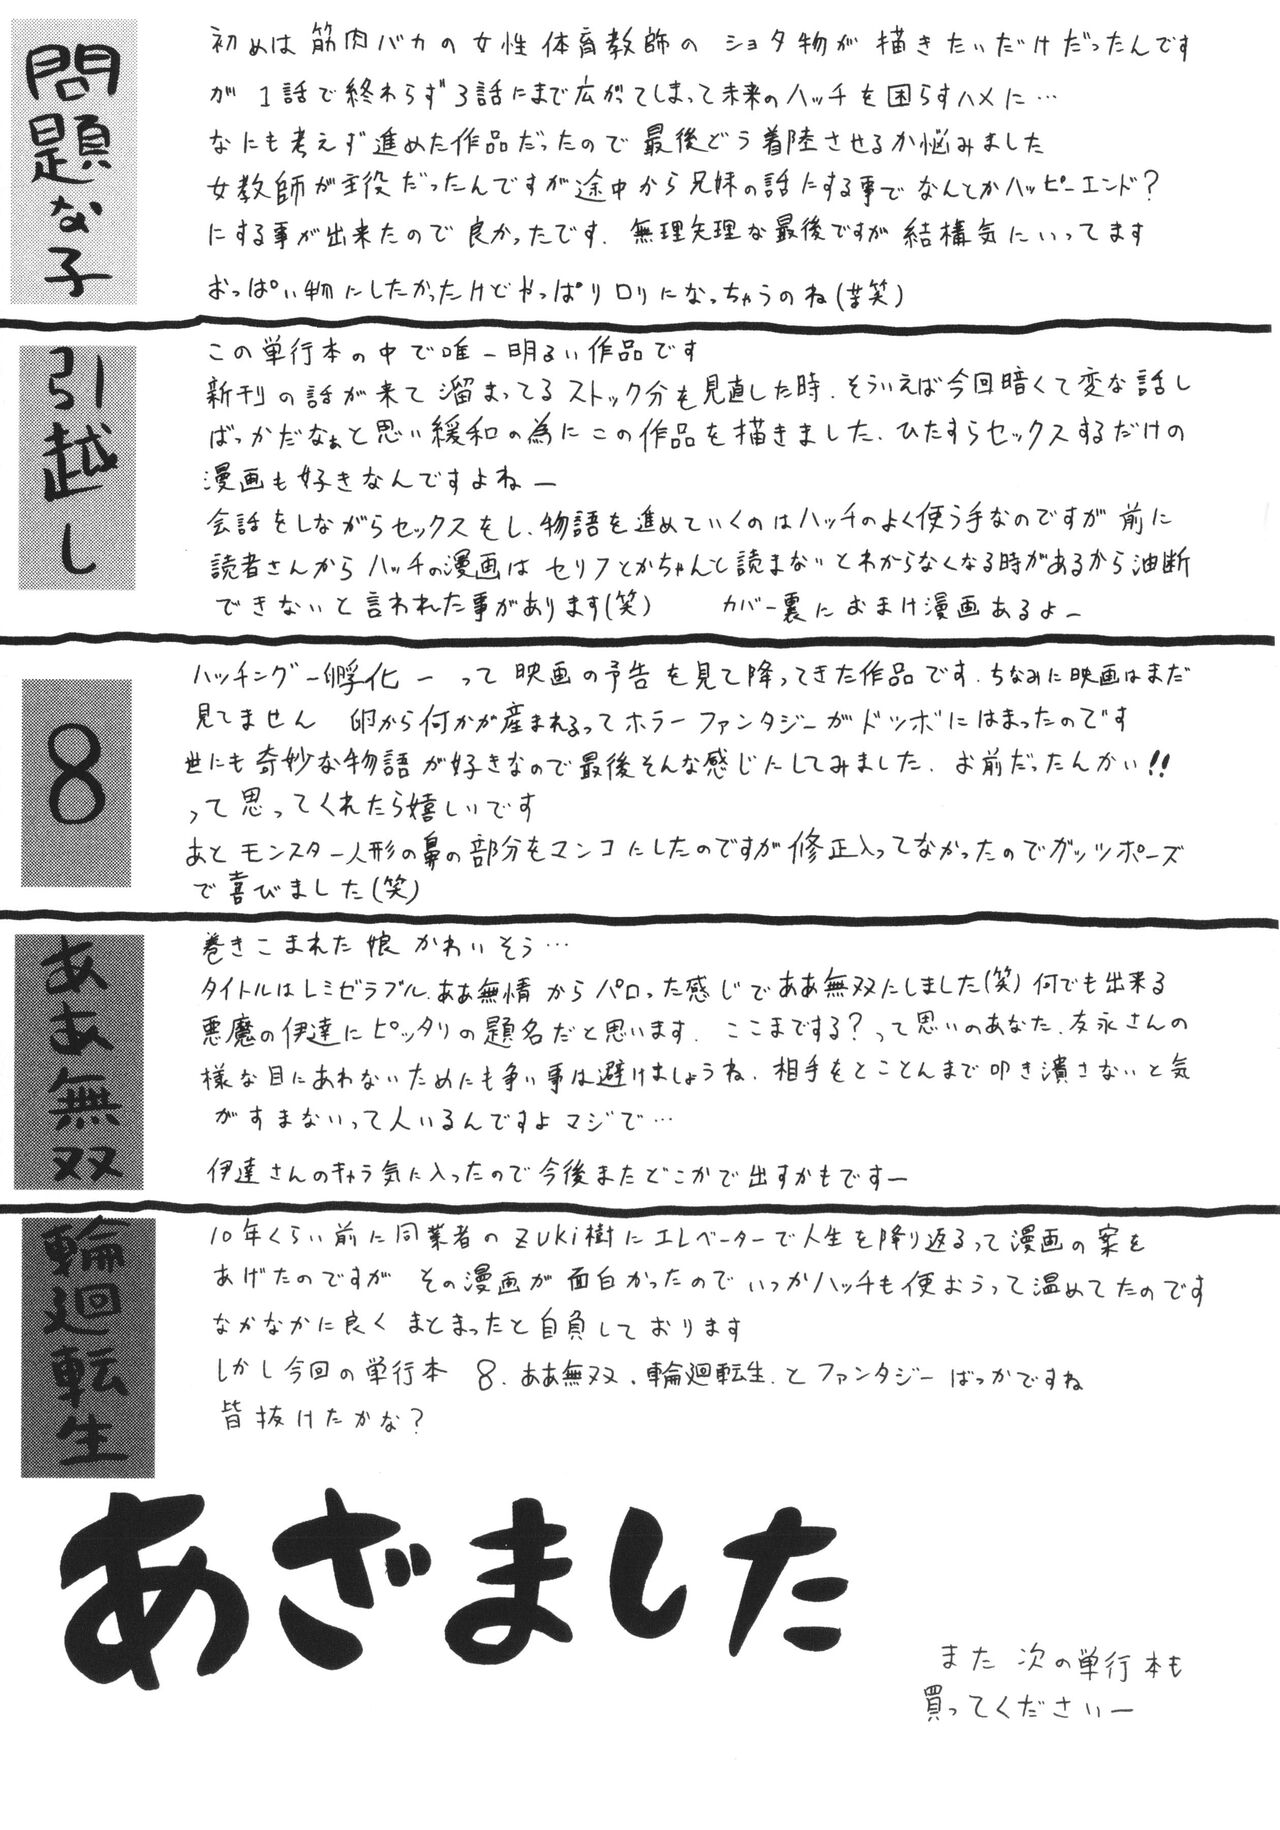 問題な子
初めは筋肉バカの女性体育教師の ショタ物が描きたいだけだったんです
が 1話で終わらず3話にまで広がってしまって未来のハッチを困らすハメに…
なにも考えず進めた作品だったので最後どう着陸させるか悩みました
女教師が主役だったんですが途中から兄妹の話にする事で なんとかハッピーエンド?
にする事が出来たので良かったです. 無理矢理な最後ですが結構気にいってます
おっぱい物にしたかったけどやっぱりロリになっちゃうのね(苦笑)
引越し
この単行本の中で唯一明るい作品です
新刊の話が来て溜まってるストック分を見直した時、そういえば今回暗くて変な話し
ばっかだなぁと思い緩和の為にこの作品を描きました、ひたすらセックスするだけの
漫画も好きなんですよねー
会話をしながらセックスをし、物語を進めていくのはハッチのよく使う手なのですが 前に
読者さんからハッチの漫画は セリフとかちゃんと読まないとわからなくなる時があるから油断
できないと言われた事があります(笑) カバー裏におまけ漫画あるよー
8
ハッチングー孵化ー って映画の予告を見て降ってきた作品です、ちなみに映画はまだ
見てません 卵から何かが産まれるってホラーファンタジーがドツボにはまったのです
世にも奇妙な物語が好きなので最後そんな感じにしてみました、お前だったんかい!!
って思ってくれたら嬉しいです
あと モンスター人形の鼻の部分をマンコにしたのですが修正入ってなかったのでガッツポーズ
で喜びました(笑)
ああ無双
巻きこまれた娘 かわいそう…
タイトルはレミゼラブル、ああ無情からパロった感じでああ無双にしました(笑)何でも出来る
悪魔の伊達にピッタリの題名だと思います、ここまでする?って思いのあなた、友永さんの
様な目にあわないためにも争い事は避けましょうね、相手をとことんまで叩き潰さないと気
がすまないって人いるんですよマジで…
伊達さんのキャラ気に入ったので今後またどこかで出すかもですー
輪廻転生
10年くらい前に同業者のZUKI樹にエレベーターで人生を降り返るって漫画の案を
あげたのですが その漫画が面白かったのでいつかハッチも使おうって温めてたのです
なかなかに良く まとまったと自負しております
しかし今回の単行本 8、ああ無双、輪廻転生、とファンタジーばっかですね
皆抜けたかな?
あざました
また 次の単行本も
買ってくださいー